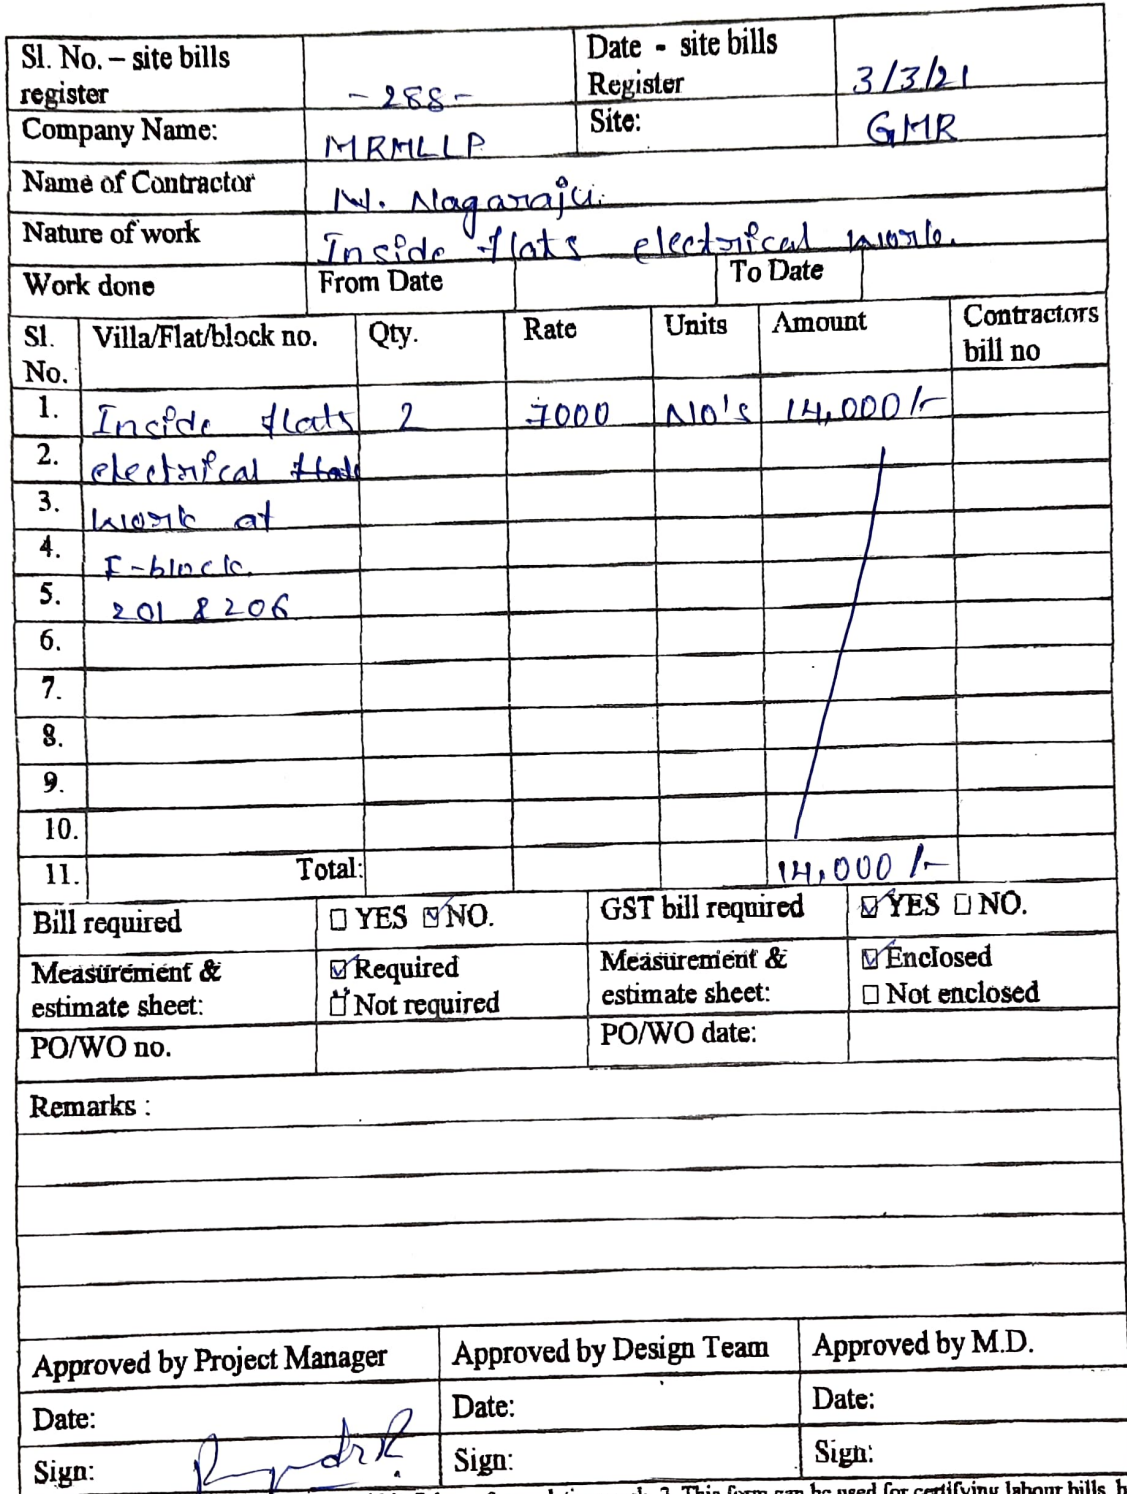 Sl. No. – site bills register - 288 - Date - site bills Register 3/3/21
Company Name: MRMLLP Site: GMR
Name of Contractor N. Nagaraju.
Nature of work Inside flats electrical work.
Work done From Date To Date
Sl. No. Villa/Flat/block no. Qty. Rate Units Amount Contractors bill no
1. Inside flats 2 7000 No's 14,000/-
2. electrical
3. work at
4. F-block.
5. 201 & 206
6.
7.
8.
9.
10.
11. Total: 14,000/-
Bill required ☐ YES ☑ NO. GST bill required ☑ YES ☐ NO.
Measurement & estimate sheet: ☑ Required ☐ Not required Measurement & estimate sheet: ☑ Enclosed ☐ Not enclosed
PO/WO no. PO/WO date:
Remarks :
Approved by Project Manager Approved by Design Team Approved by M.D.
Date: Date: Date:
Sign: Sign: Sign:
This form can be used for certifying labour bills,